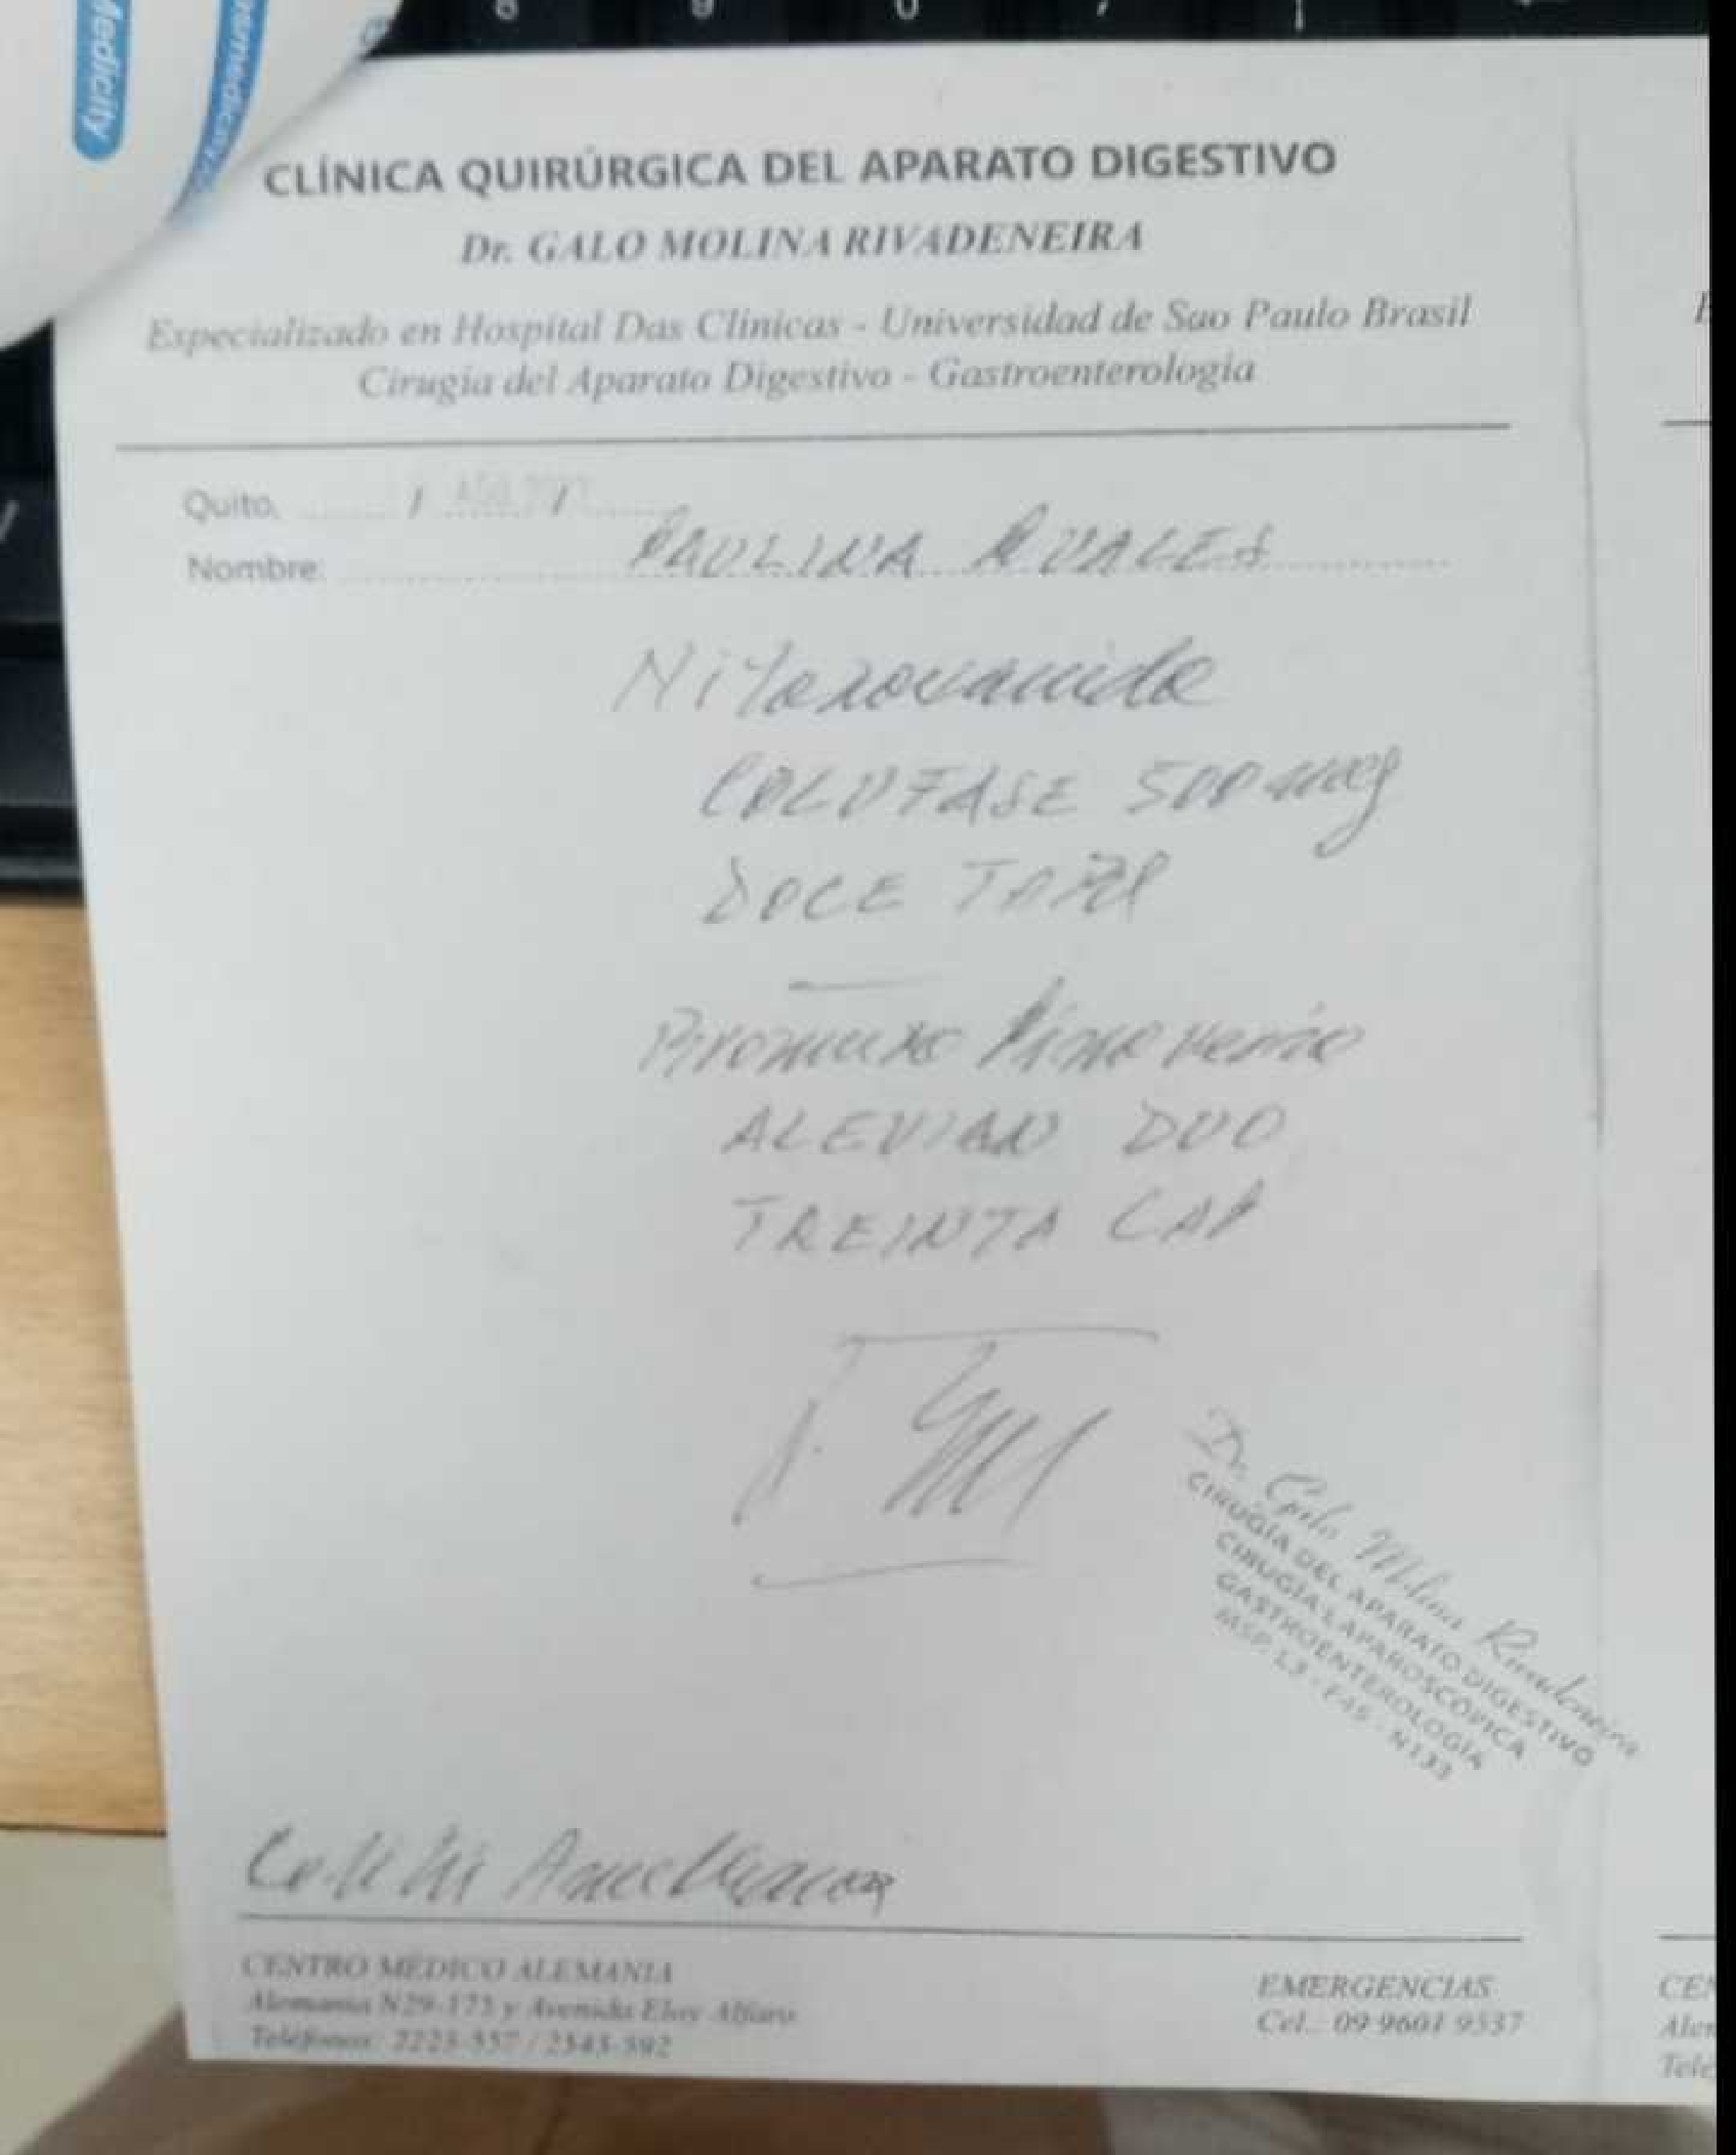 Medicity
CLÍNICA QUIRÚRGICA DEL APARATO DIGESTIVO
Dr. GALO MOLINA RIVADENEIRA
Especializado en Hospital Das Clinicas - Universidad de Sao Paulo Brasil
Cirugía del Aparato Digestivo - Gastroenterología
Quito, / AGO /
Nombre: PAULINA RUALES
Nitazoxanida
COLUFASE 500 mg
DOCE TAB
Bromuro Pinaverio
ALEVIAN DUO
TREINTA CAP
Dr. Galo Molina Rivadeneira
CIRUGÍA DEL APARATO DIGESTIVO
CIRUGÍA LAPAROSCÓPICA
GASTROENTEROLOGÍA
MSP. L3 - F45 - N133
CENTRO MÉDICO ALEMANIA
Alemania N29-173 y Avenida Eloy Alfaro
Teléfonos: 2223-557 / 2543-592
EMERGENCIAS
Cel.: 09 9601 9537